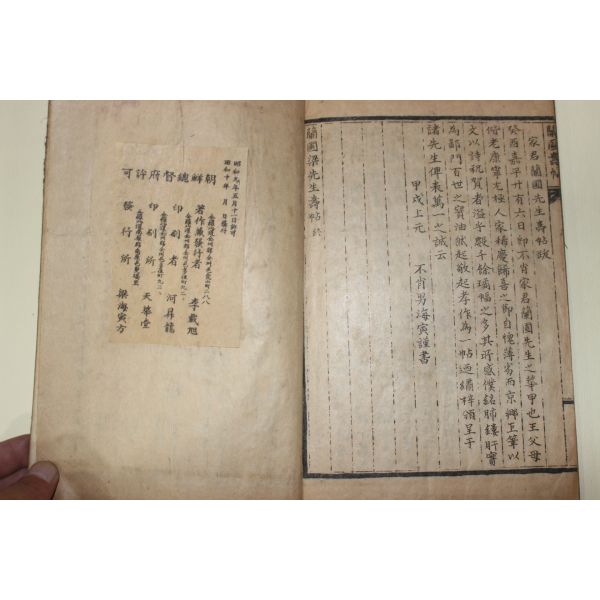 蘭圃壽帖
家君蘭圃先生壽帖跋
癸酉嘉平廿有六日即不肖家君蘭圃先生之華甲也王父母
偕老康寧尤極人家稀慶歸喜之即自愧薄劣而京鄉工筆以
文以詩祝賀者溢宇殿千餘瑀幅之多其所感僕銘肺鏤肝實
為部門百世之寶油然起敬起孝作為一帖迺繡梓頒呈于
諸先生俾表萬一之誠云
甲戌上元 不肖男海寅謹書
蘭圃梁先生壽帖終
昭和九年五月十一日許可
昭和十年 月 日發行
朝鮮總督府許可
著作兼發行者 李載旭
印刷者 河昇龍
印刷所 天華堂
發行所 梁海寅方